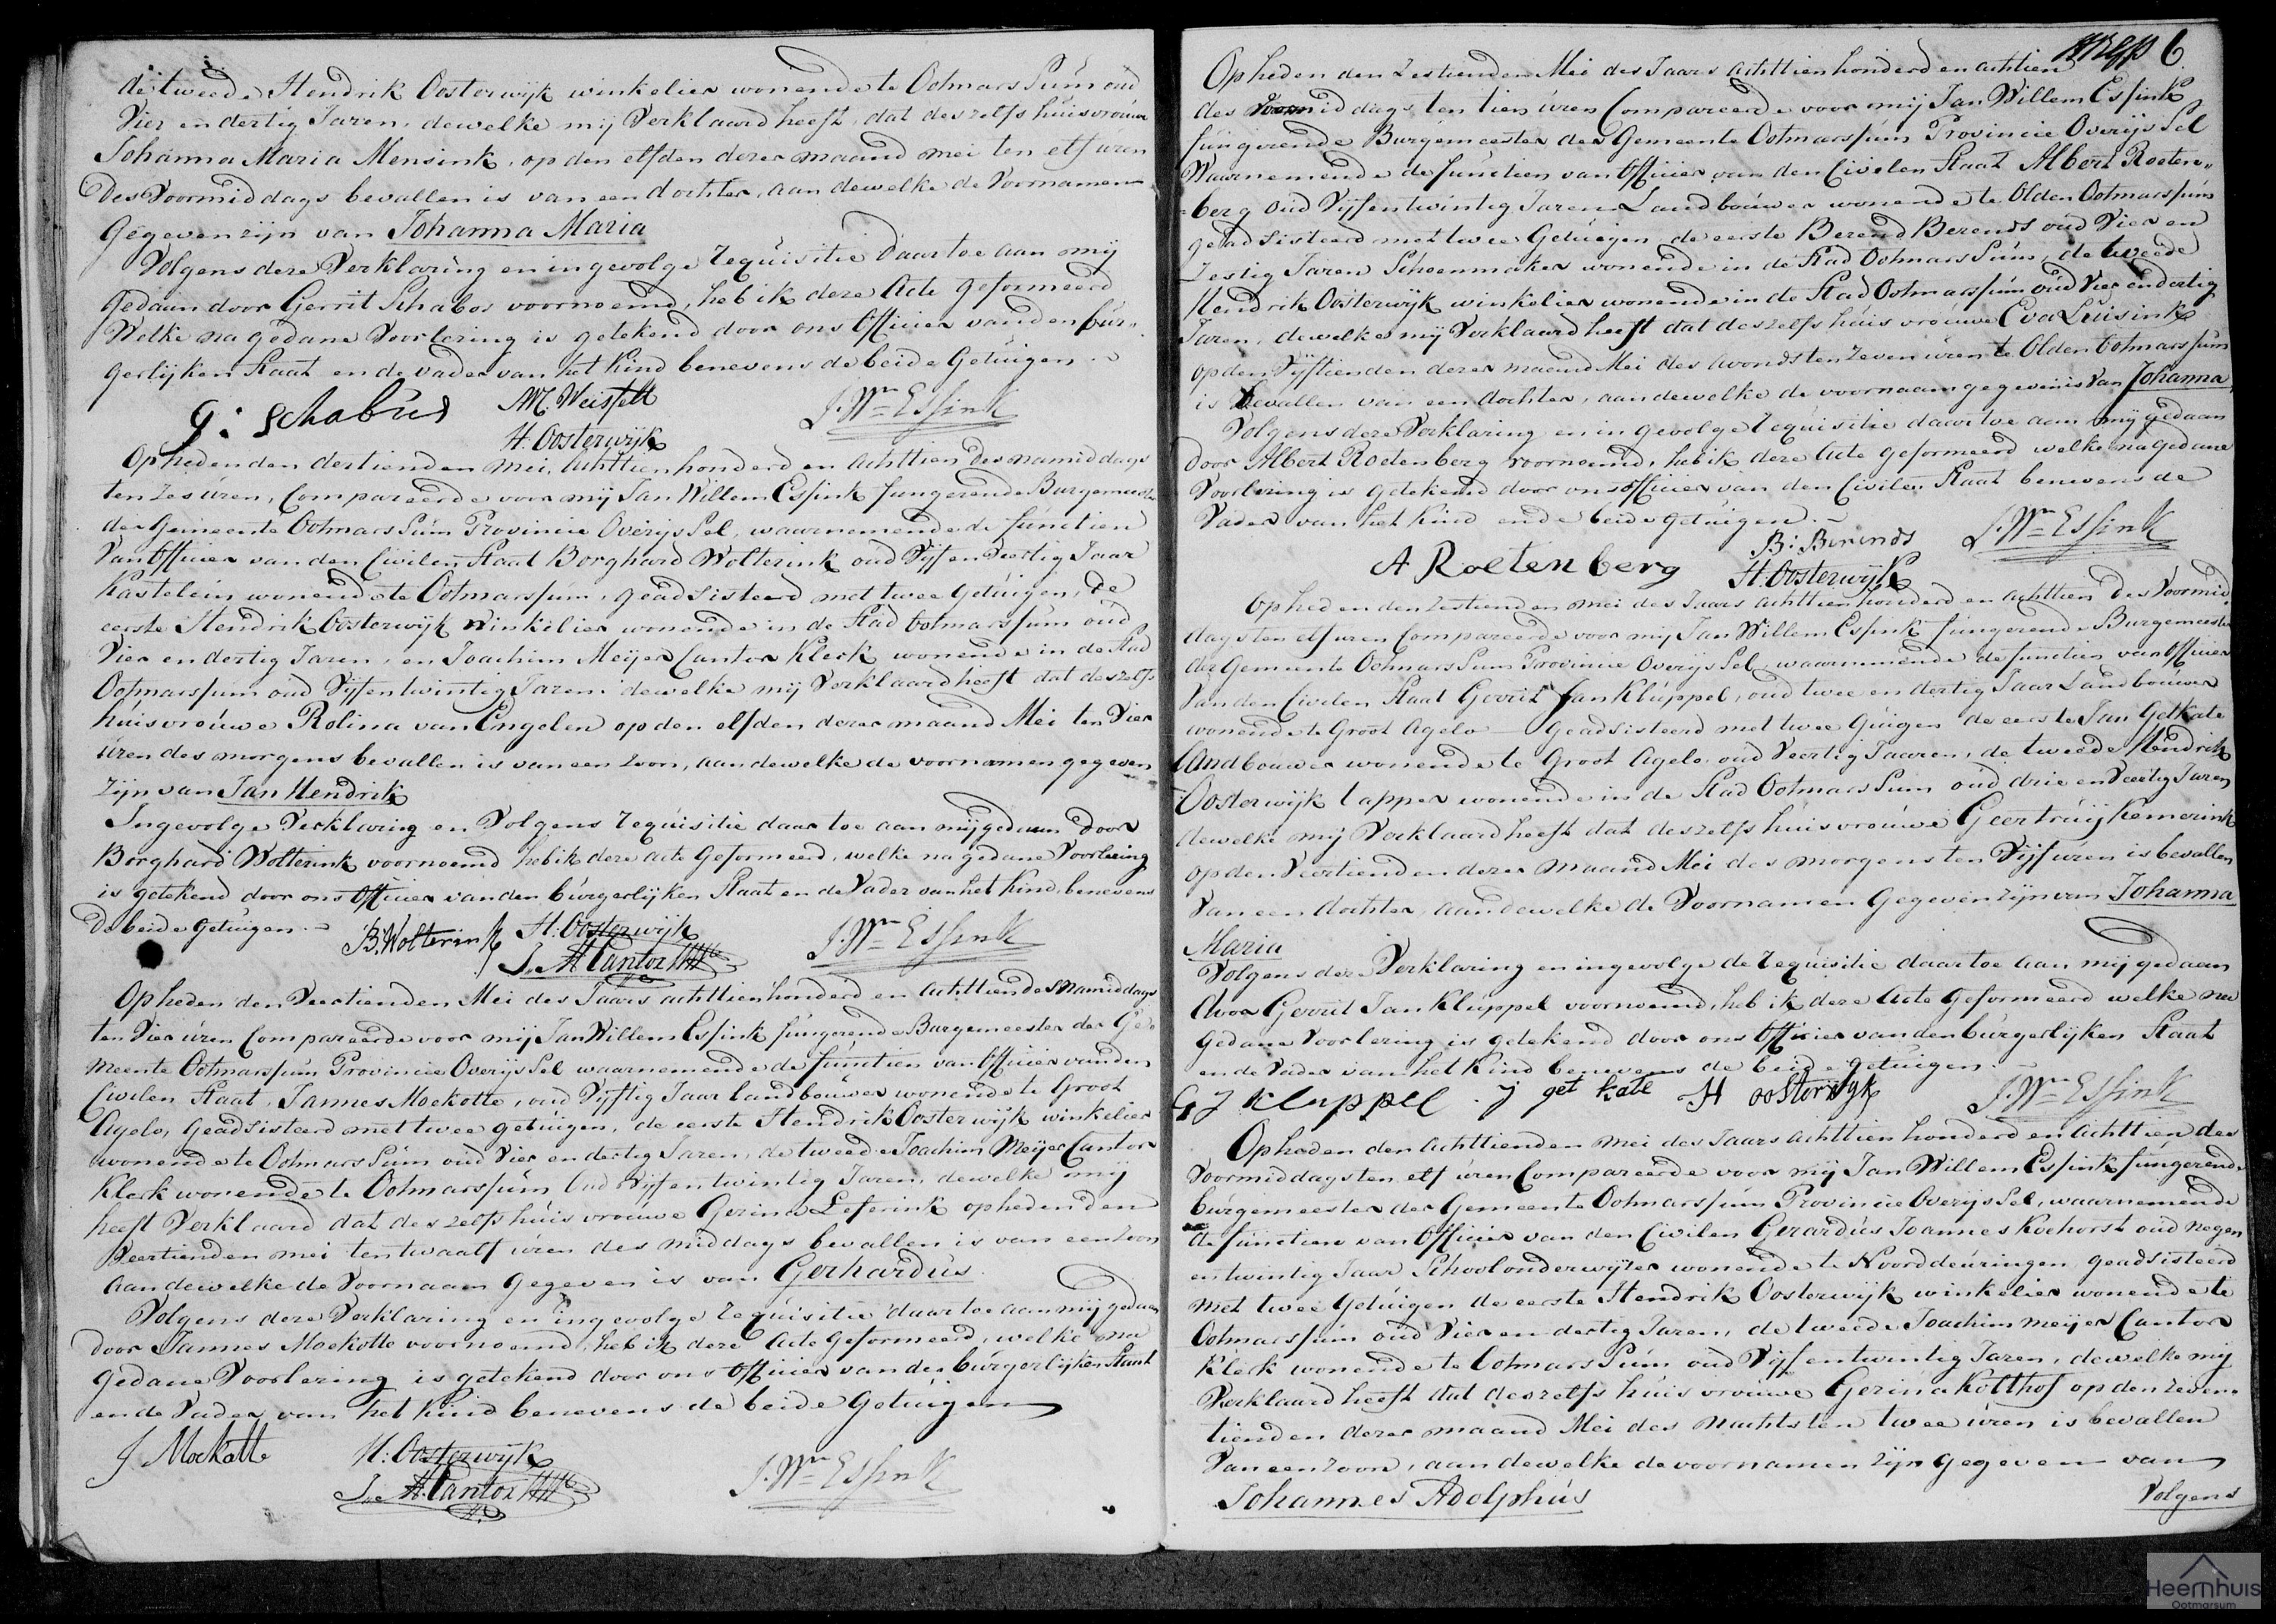 de tweede Hendrik Oosterwijk winkelier wonende te Ootmarssum oud
Vier en dertig Jaren, dewelke mij Verklaard heeft, dat deszelfs huisvrouw
Johanna Maria Mensink, op den elfden dezer maand mei ten elf uren
Des Voormiddags bevallen is van een dochter, aan dewelke de Voornamen
Gegeven zijn van Johanna Maria
Volgens deze Verklaring en ingevolge requisitie daar toe aan mij
Gedaan door Gerrit Schabos voornoemd, heb ik deze Acte geformeerd
Welke na gedane Voorlezing is getekend door ons Officier van den bur„
gerlijken Staat en de vader van het kind benevens de beide Getuigen.
G: Schabus
H. Oosterwijk
J. Wm Essink
Op heden den dertienden mei, Achttien honderd en Achttien des namiddags
ten zes uren, Compareerde voor mij Jan Willem Essink fungerende Burgemeester
der Gemeente Ootmarssum Provincie Overijssel, waarnemende de functien
Van Officier van den Civilen Staat Borghard Wolterink oud Vijf en Veertig Jaar
Kastelein wonende te Ootmarssum, geadsisteerd met twee Getuigen, de
eerste Hendrik Oosterwijk Winkelier wonende in de Stad Ootmarssum oud
Vier en dertig Jaren, en Joachim Meijer Cantor Klerk wonende in de Stad
Ootmarssum oud Vijf en twintig Jaren. dewelke mij Verklaard heeft dat deszelfs
huisvrouwe Rolina van Engelen op den elfden dezer maand Mei ten Vier
uren des morgens bevallen is van een zoon, aan dewelke de voornamen gegeven
zijn van Jan Hendrik
Ingevolge Verklaring en Volgens requisitie daar toe aan mij gedaan door
Borghard Wolterink voornoemd heb ik deze acte Geformeerd, welke na gedane Voorlezing
is getekend door ons Officier van den burgerlijken Staat en de Vader van het kind, benevens
De beide Getuigen.
B. Wolterink
H. Oosterwijk
J. M Cantor
J. Wm Essink
Op heden den Veertienden Mei des Jaars achttien honderd en Achttien des Namiddags
ten Vier uren Compareerde voor mij Jan Willem Essink fungerende Burgemeester der Ge„
meente Ootmarssum Provincie Overijssel waarnemende de functien van Officier van den
Civilen Staat, Jannes Mockotte, oud Vijftig Jaar landbouwer wonende te Groot
Agelo, Geadsisteerd met twee getuigen, de eerste Hendrik Oosterwijk winkelier
wonende te Ootmarssum oud Vier en dertig Jaren, de tweede Joachim Meijer Cantor
Klerk wonende te Ootmarssum Oud Vijf en twintig Jaren, dewelke mij
heeft Verklaard dat deszelfs huisvrouwe Gezina Leferink op heden den
Veertienden mei ten twaalf uren des middags bevallen is van een zoon
aan dewelke de Voornaam Gegeven is van Gerhardus.
Volgens deze Verklaring en ingevolge requisitie daar toe aan mij gedaan
door Jannes Mockotte voornoemd, heb ik deze Acte Geformeerd, welke na
Gedane Voorlezing is getekend door ons Officier van den burgerlijken Staat
en de Vader van het kind benevens de beide Getuigen
J Mockotte
H. Oosterwijk
J. M. Cantor
J. Wm Essink
6
Op heden den Zestienden Mei des Jaars achttien honderd en achtien
des Voormiddags ten tien uren Compareerde voor mij Jan Willem Essink
fungerende Burgemeester der Gemeente Ootmarssum Provincie Overijssel
Waarnemende de functien van Officier van den Civilen Staat Albert Roeten„
„berg oud Vijf en twintig Jaren Landbouwer wonende te Olden Ootmarssum
geadsisteerd met twee Getuigen de eerste Berend Berends oud Vier en
Zestig Jaren Schoenmaker wonende in de Stad Ootmarssum, de tweede
Hendrik Oosterwijk winkelier wonende in de Stad Ootmarssum oud Vier en dertig
Jaren, dewelke mij Verklaard heeft dat deszelfs huisvrouwe Eva Luisink
op den Vijftienden dezer maand Mei des avonds ten zeven uren te Olden Ootmarssum
is bevallen van een dochter, aan dewelke de voornaam gegeven is van Johanna
Volgens deze Verklaring en in gevolge requisitie daartoe aan mij gedaan
door Albert Roetenberg voornoemd, heb ik deze Acte geformeerd welke na gedane
Voorlezing is getekend door ons officier van den Civilen Staat benevens de
Vader van het kind en de beide getuigen.
A Roetenberg
B: Berends
H. Oosterwijk
J. Wm Essink
Op heden den zestienden mei des Jaars achttien honderd en achttien des Voormid„
dags ten elf uren Compareerde voor mij Jan Willem Essink fungerende Burgemeester
der Gemeente Ootmarssum Provincie Overijssel, waarnemende de functien van Officier
Van den Civilen Staat Gerrit Jan Kluppel, oud twee en dertig Jaar Landbouwer
wonende te Groot Agelo Geadsisteerd met twee Getuigen de eerste Jan Getkate
Landbouwer wonende te Groot Agelo, oud Veertig Jaaren, de tweede Hendrik
Oosterwijk tapper wonende in de Stad Ootmarssum oud drie en Veertig Jaren
dewelke mij Verklaard heeft dat deszelfs huisvrouwe Geertruij Kemerink
op den Veertienden dezer maand Mei des morgens ten Vijf uren is bevallen
Van een dochter, aan dewelke de Voornamen Gegeven zijn van Johanna
Maria
Volgens deze Verklaring en ingevolge de requisitie daartoe aan mij gedaan
door Gerrit Jan Kluppel voornoemd, heb ik deze Acte Geformeerd welke na
Gedane Voorlezing is getekend door ons Officier van den burgerlijken Staat
en de Vader van het kind benevens de beide getuigen.
G J kluppel
J get kate
H oosterwyk
J. Wm Essink
Op heden den achttienden mei des Jaars achttien honderd en achttien des
Voormiddags ten elf uren Compareerde voor mij Jan Willem Essink fungerende
burgemeester der Gemeente Ootmarssum Provincie Overijssel, waarnemende
de functien van Officier van den Civilen Gerardus Joannes Koehorst oud negen
en twintig Jaar Schoolonderwijzer wonende te Noorddeuringen geadsisteerd
met twee Getuigen de eerste Hendrik Oosterwijk winkelier wonende te
Ootmarssum oud Vier en dertig Jaren, de tweede Joachim meijer Cantor
Klerk wonende te Ootmarssum oud Vijf en twintig Jaren, dewelke mij
Verklaard heeft dat deszelfs huisvrouwe Gezina Kolthof op den zeven„
tienden dezer maand Mei des Nachts ten twee uren is bevallen
Van een zoon, aan dewelke de voornamen zijn gegeven van
Johannes Adolphus
Volgens
Heemhuis
Ootmarsum